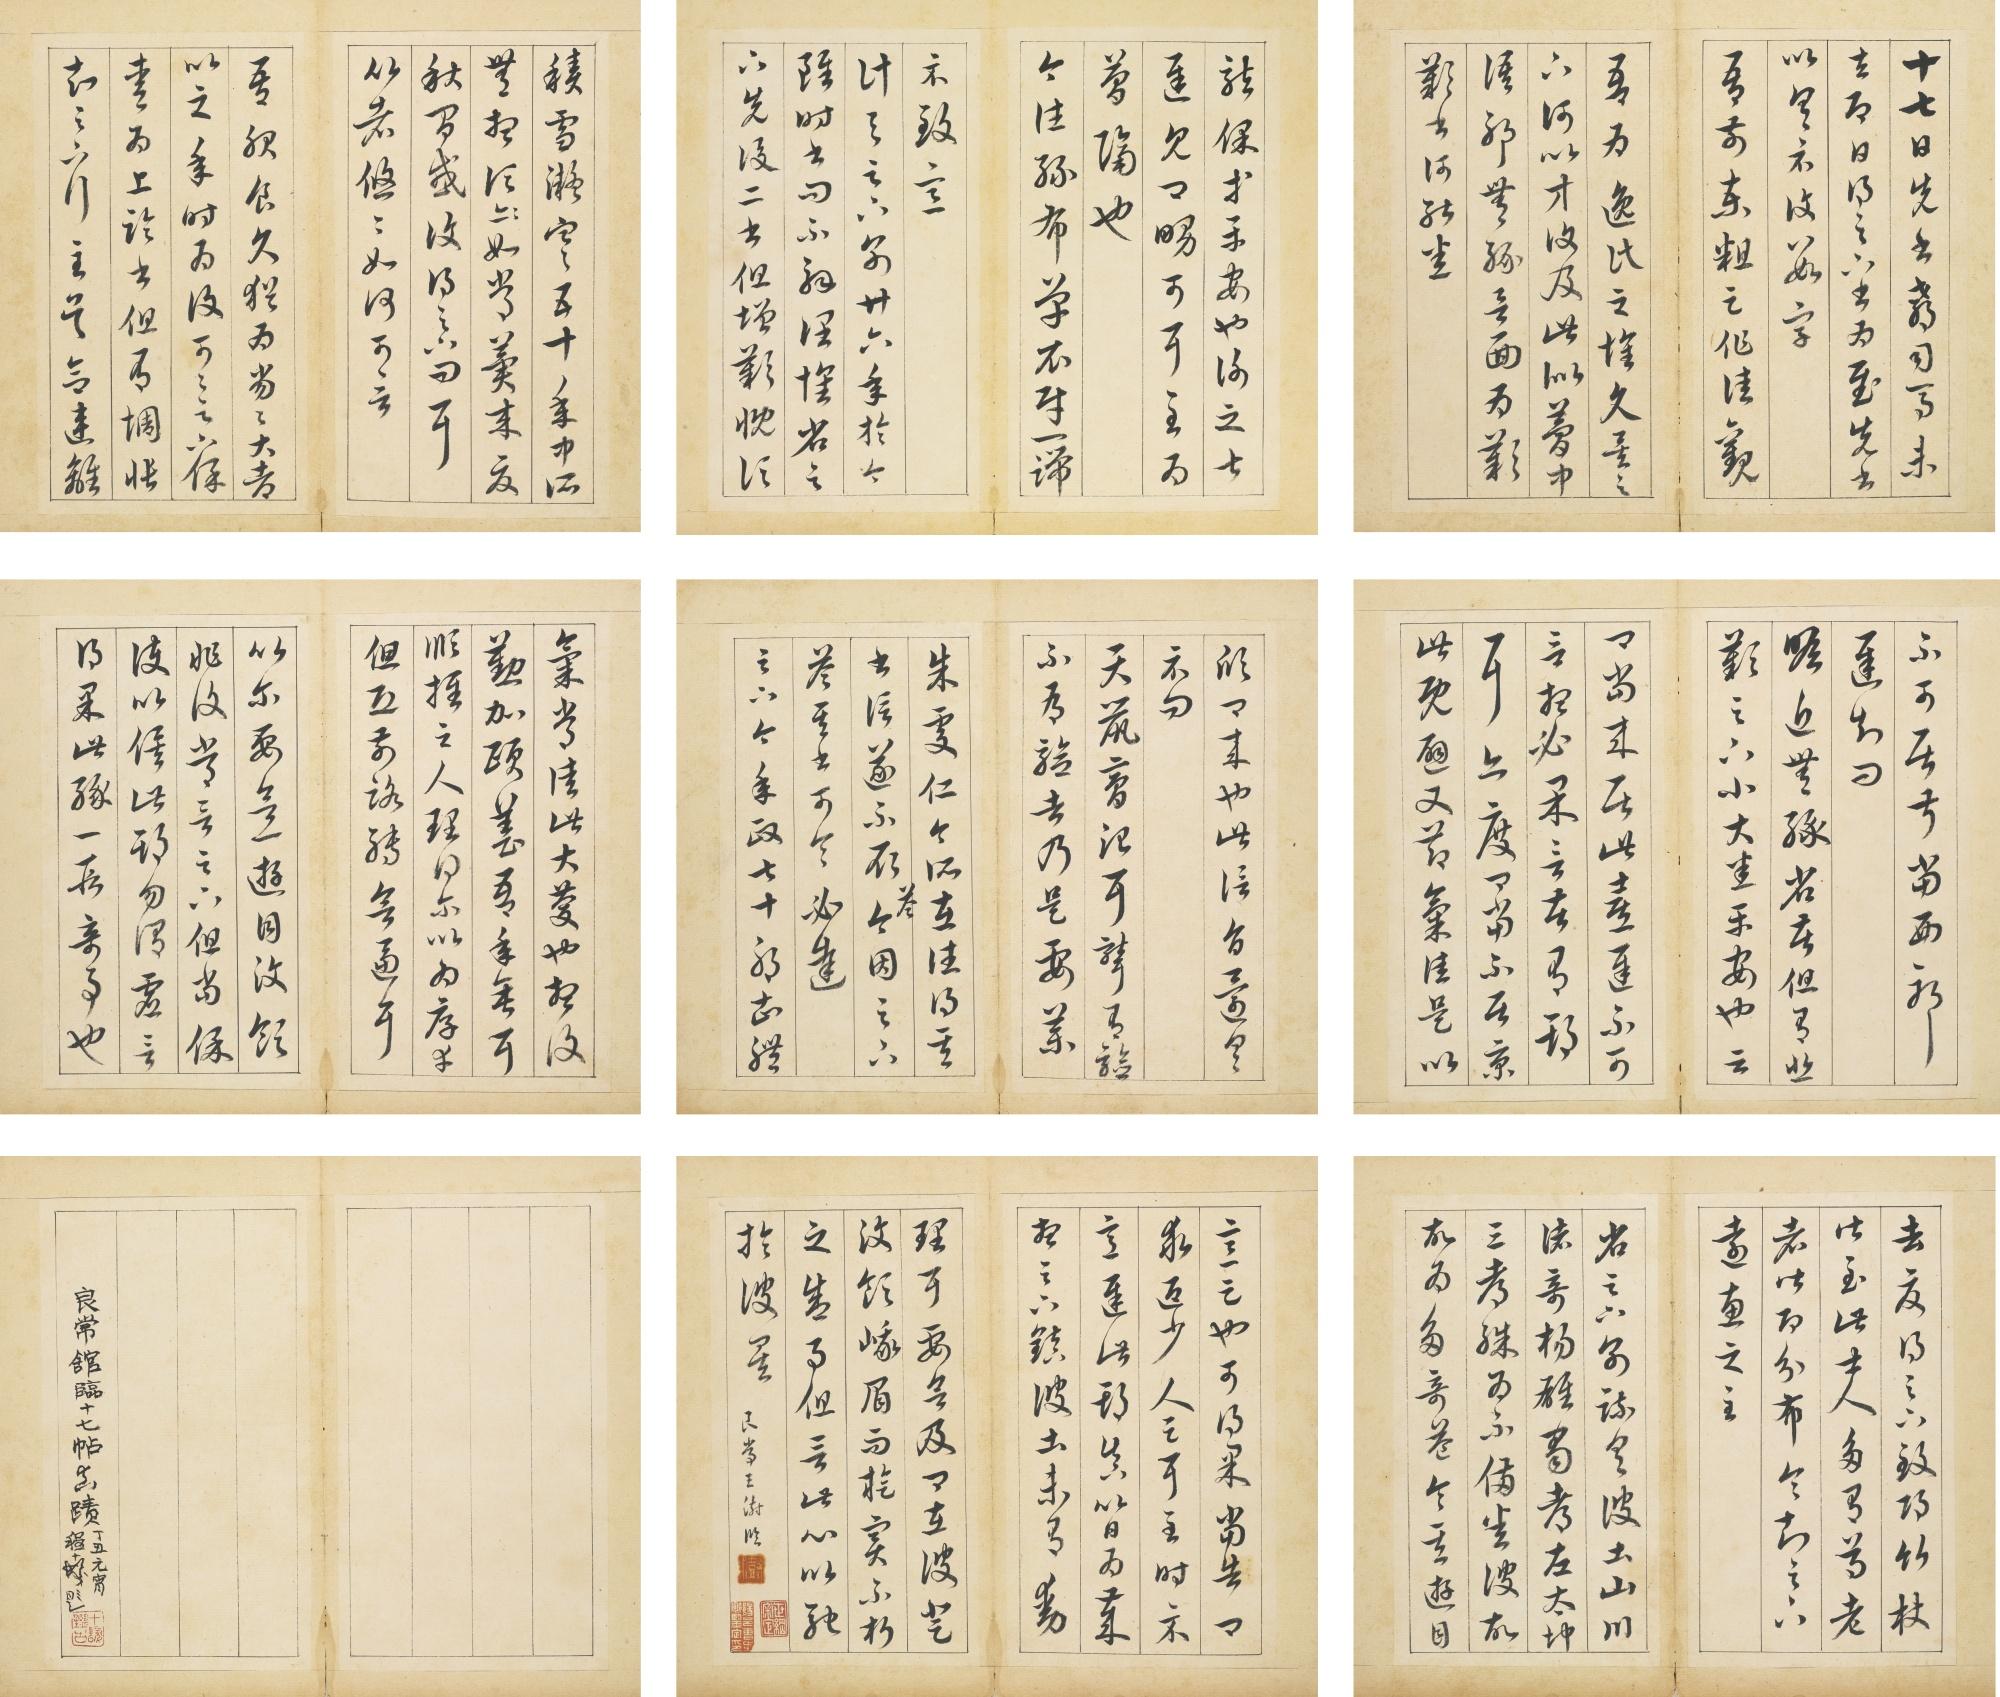 十七日先書郗司馬未
去即日得足下書為慰先書
以具示復數字
吾前東粗足作佳觀
吾為逸民之懷久矣足
下何以方復及此似夢中
語耶無緣言面為歎
歎書何能悉
龍保等平安也謝之甚
遲見卿舅可耳至為
簡隔也
今往絲布單衣財一端
示致意
計与足下別廿六年於今
雖時書問不解闊懷省足
下先後二書但增歎慨頃
積雪凝寒五十年中所
無想頃如常冀來夏
秋間或復得足下問耳
比者悠悠如何可言
吾服食久猶為劣劣大都
比之年時為復可可足下保
愛為上臨書但有惆悵
知足下行至吳念違離
不可居叔當西耶
遲知問
瞻近無緣省苦但有悲
歎足下小大悉平安也云
卿當來居此喜遲不可
言想必果言苦有期
耳亦度卿當不居京
此既避又節氣佳是以
欣卿來也此信旨還具
示問
天鼠膏治耳聾有驗
不有驗者乃是要藥
朱處仁今所在往得其
書信遂不取答今因足下
答其書可令必達
足下今年政七十耶知體
氣常佳此大慶也想復
懃加頤養吾年垂耳
順推之人理得尔以為厚幸
但恐前路轉欲逼耳
以尔要欲一遊目汶領
非復常言足下但當保
護以俟此期勿謂虛言
得果此緣一段奇事也
去夏得足下致邛竹杖
皆至此士人多有尊老
者皆即分布令知足下
遠惠之至
省足下別疏具彼土山川
諸奇楊雄蜀都左太沖
三都殊為不備悉彼故
故為多奇益令其遊目
意足也可得果當告卿
求迎少人足耳至時示
意遲此期真以日為歲
想足下鎮彼土未有動
理耳要欲及卿在彼登
汶領峨眉而旋實不朽
之盛事但言此心以馳
於彼矣
良常王澍臨
良常館臨十七帖真蹟
丁丑元宵